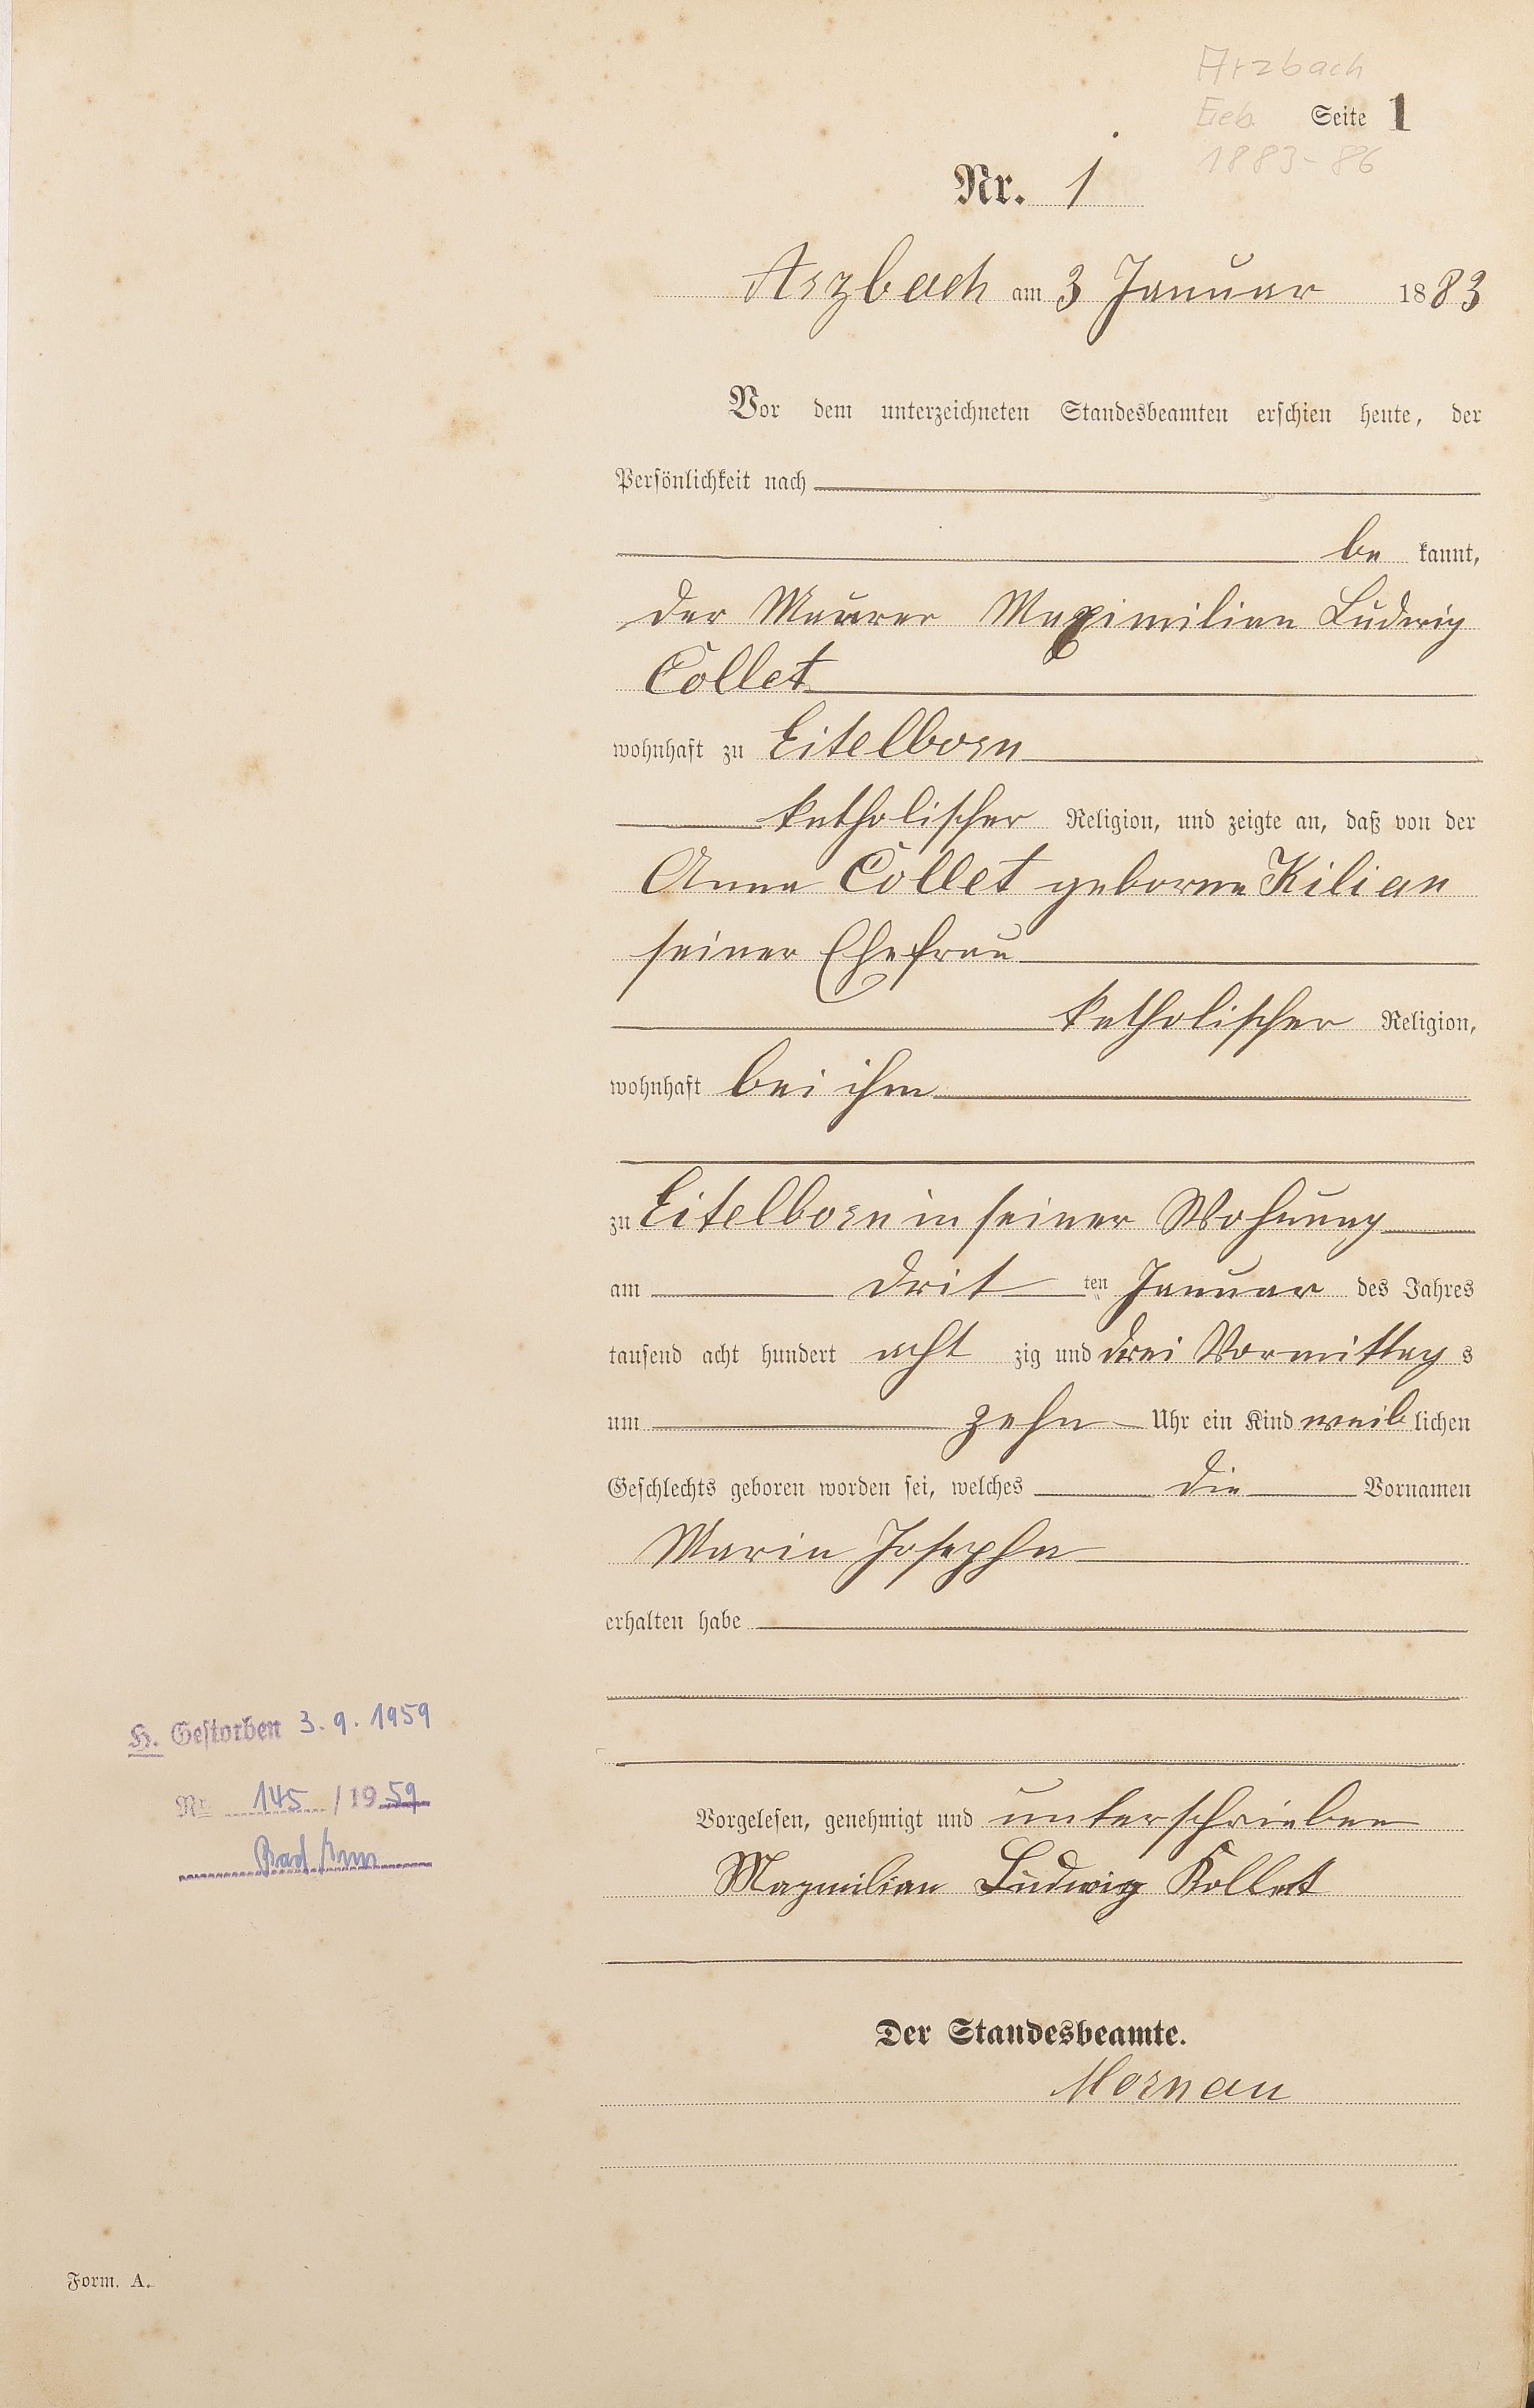 Arzbach
Geb. Seite 1
1883-86
Nr. 1
Arzbach am 3 Januar 1883
Vor dem unterzeichneten Standesbeamten erschien heute, der
Persönlichkeit nach
be kannt,
der Maurer Maximilian Ludwig
Collet
wohnhaft zu Eitelborn
katholischer Religion, und zeigte an, daß von der
Anna Collet geborne Kilian
seiner Ehefrau
katholischer Religion,
wohnhaft bei ihm
zu Eitelborn in seiner Wohnung
am drit ten Januar des Jahres
tausend acht hundert acht zig und drei Vormittag s
um zehn Uhr ein Kind weib lichen
Geschlechts geboren worden sei, welches die Vornamen
Maria Josepha
erhalten habe
H. Gestorben 3.9.1959
Nr. 145 / 1959
Bad Ems
Vorgelesen, genehmigt und unterschrieben
Maxmilian Ludwig Kollet
Der Standesbeamte.
Mornau
Form. A.